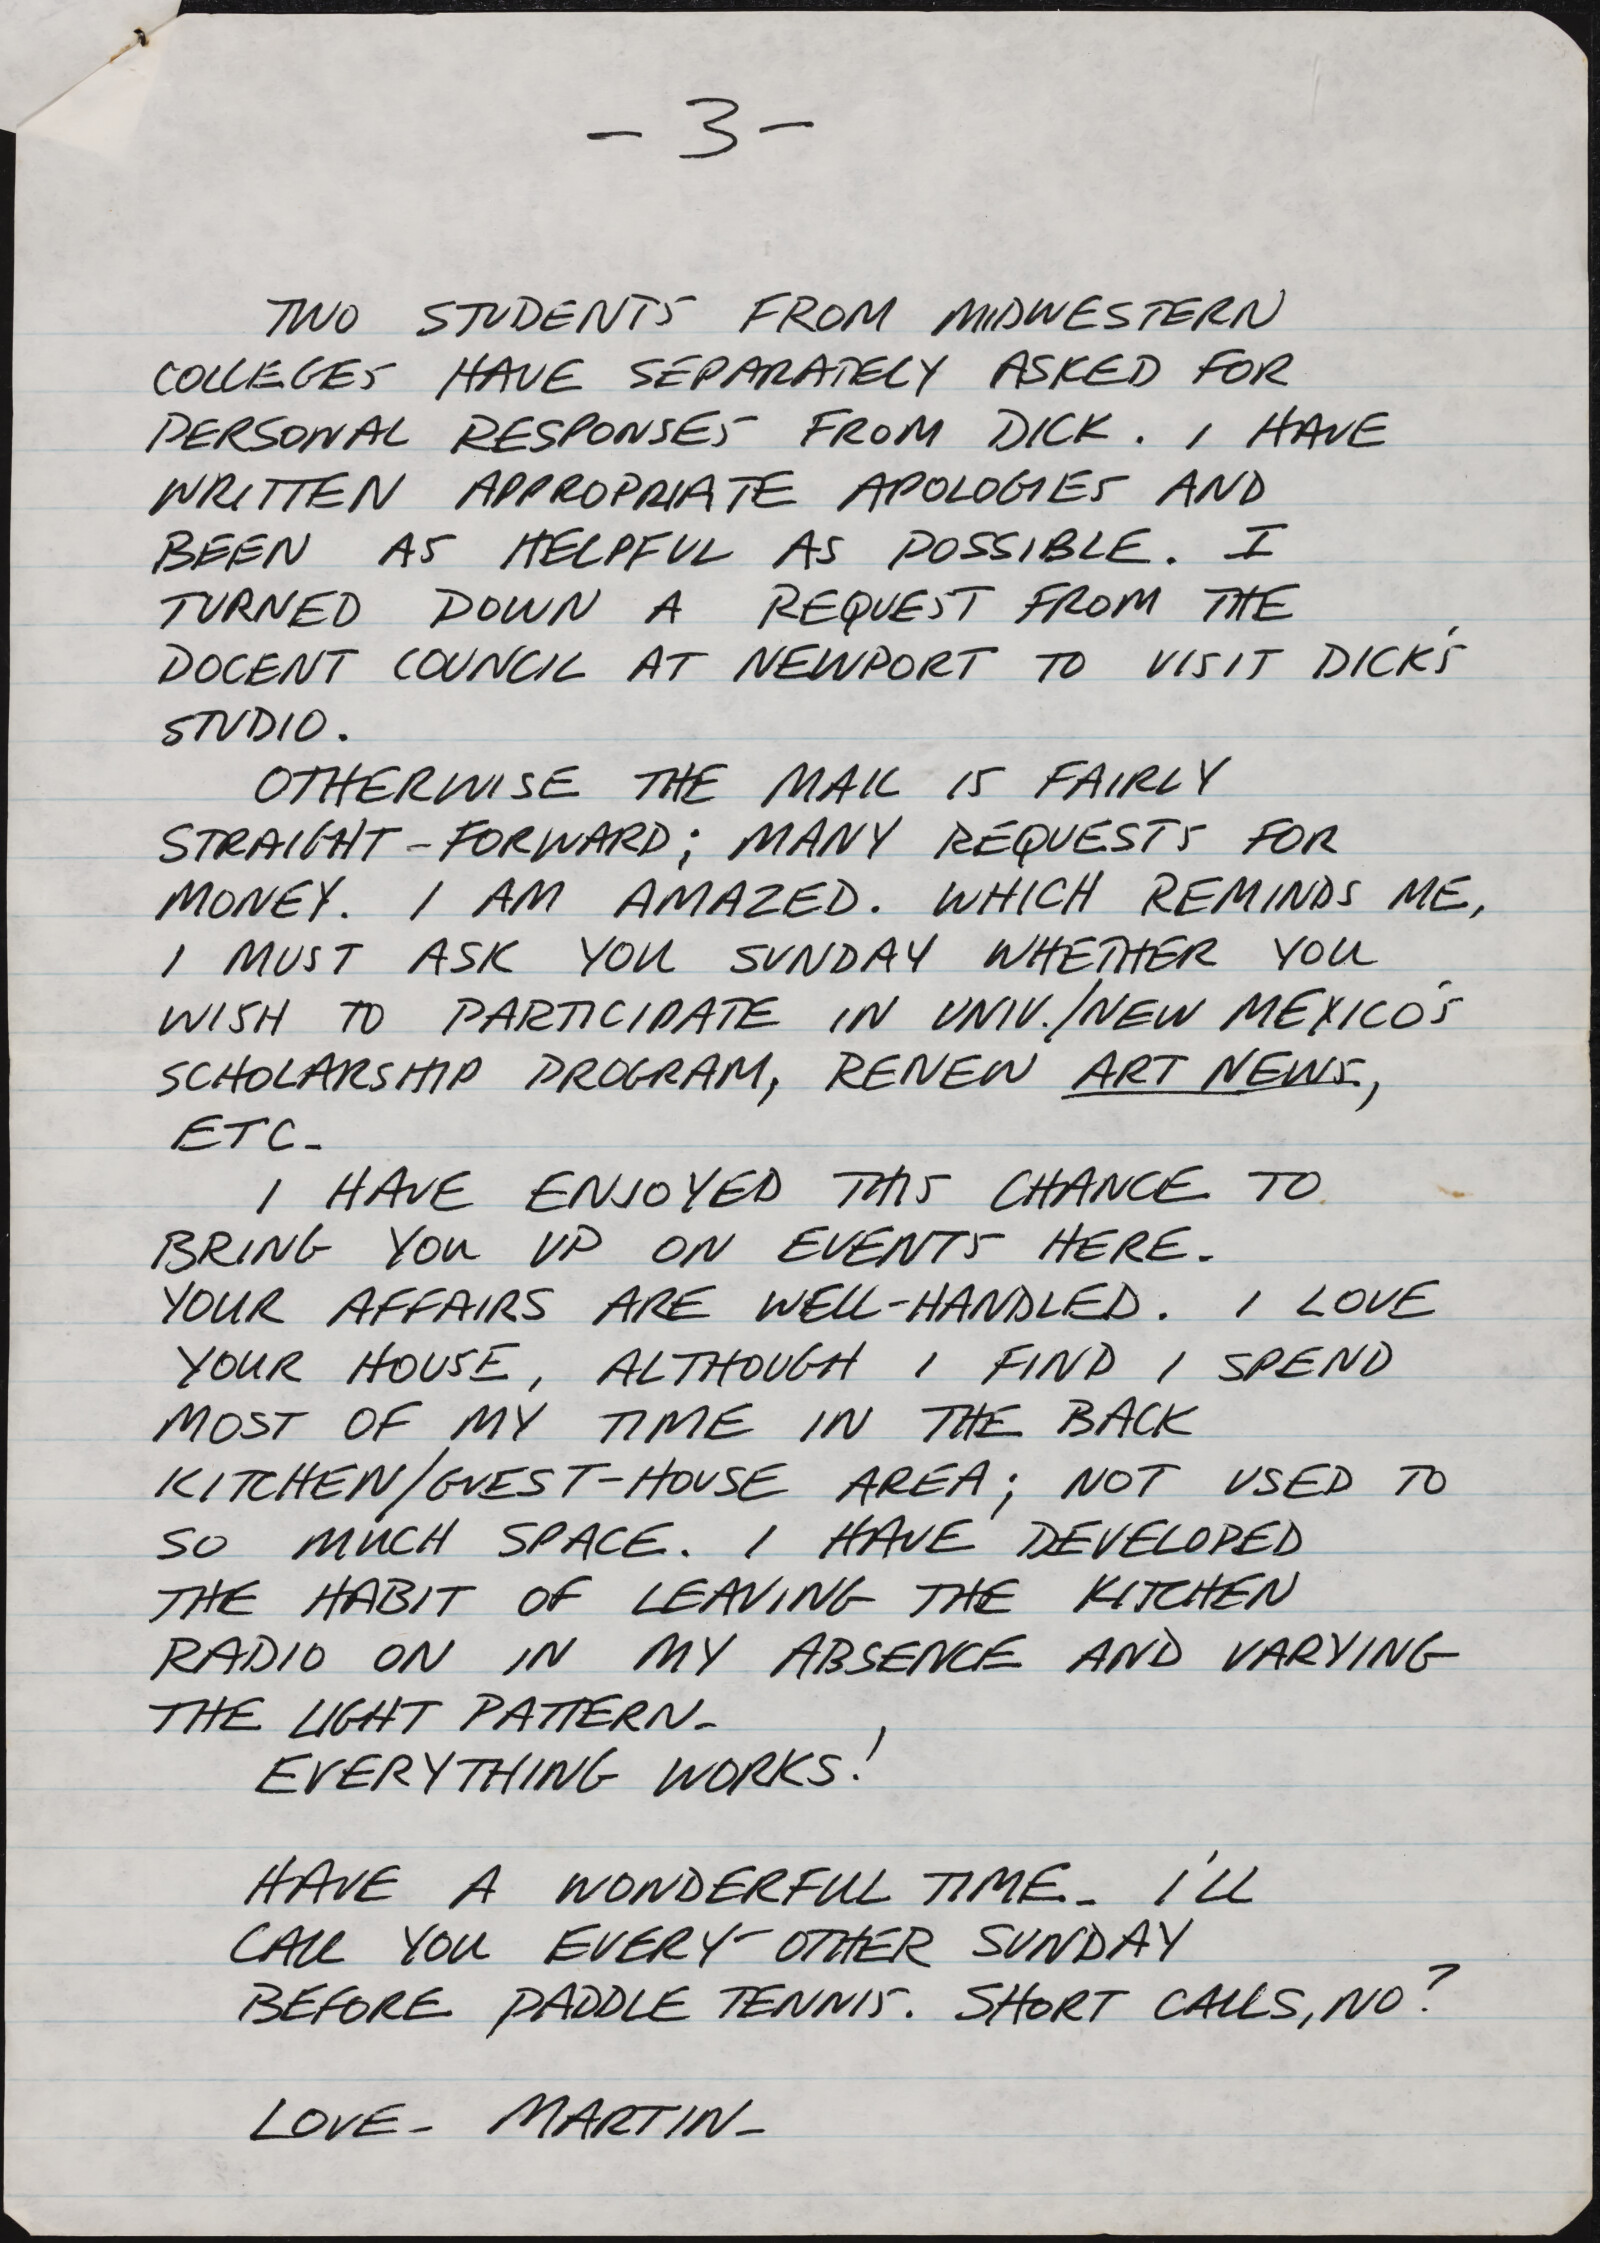 - 3 -
TWO STUDENTS FROM MIDWESTERN
COLLEGES HAVE SEPARATELY ASKED FOR
PERSONAL RESPONSES FROM DICK. I HAVE
WRITTEN APPROPRIATE APOLOGIES AND
BEEN AS HELPFUL AS POSSIBLE. I
TURNED DOWN A REQUEST FROM THE
DOCENT COUNCIL AT NEWPORT TO VISIT DICK'S
STUDIO.
OTHERWISE THE MAIL IS FAIRLY
STRAIGHT-FORWARD; MANY REQUESTS FOR
MONEY. I AM AMAZED. WHICH REMINDS ME,
I MUST ASK YOU SUNDAY WHETHER YOU
WISH TO PARTICIPATE IN UNIV./NEW MEXICO'S
SCHOLARSHIP PROGRAM, RENEW ART NEWS,
ETC-
I HAVE ENJOYED THIS CHANCE TO
BRING YOU UP ON EVENTS HERE-
YOUR AFFAIRS ARE WELL-HANDLED. I LOVE
YOUR HOUSE, ALTHOUGH I FIND I SPEND
MOST OF MY TIME IN THE BACK
KITCHEN/GUEST-HOUSE AREA; NOT USED TO
SO MUCH SPACE. I HAVE DEVELOPED
THE HABIT OF LEAVING THE KITCHEN
RADIO ON IN MY ABSENCE AND VARYING
THE LIGHT PATTERN-
EVERYTHING WORKS!
HAVE A WONDERFUL TIME- I'LL
CALL YOU EVERY-OTHER SUNDAY
BEFORE PADDLE TENNIS. SHORT CALLS, NO?
LOVE- MARTIN-